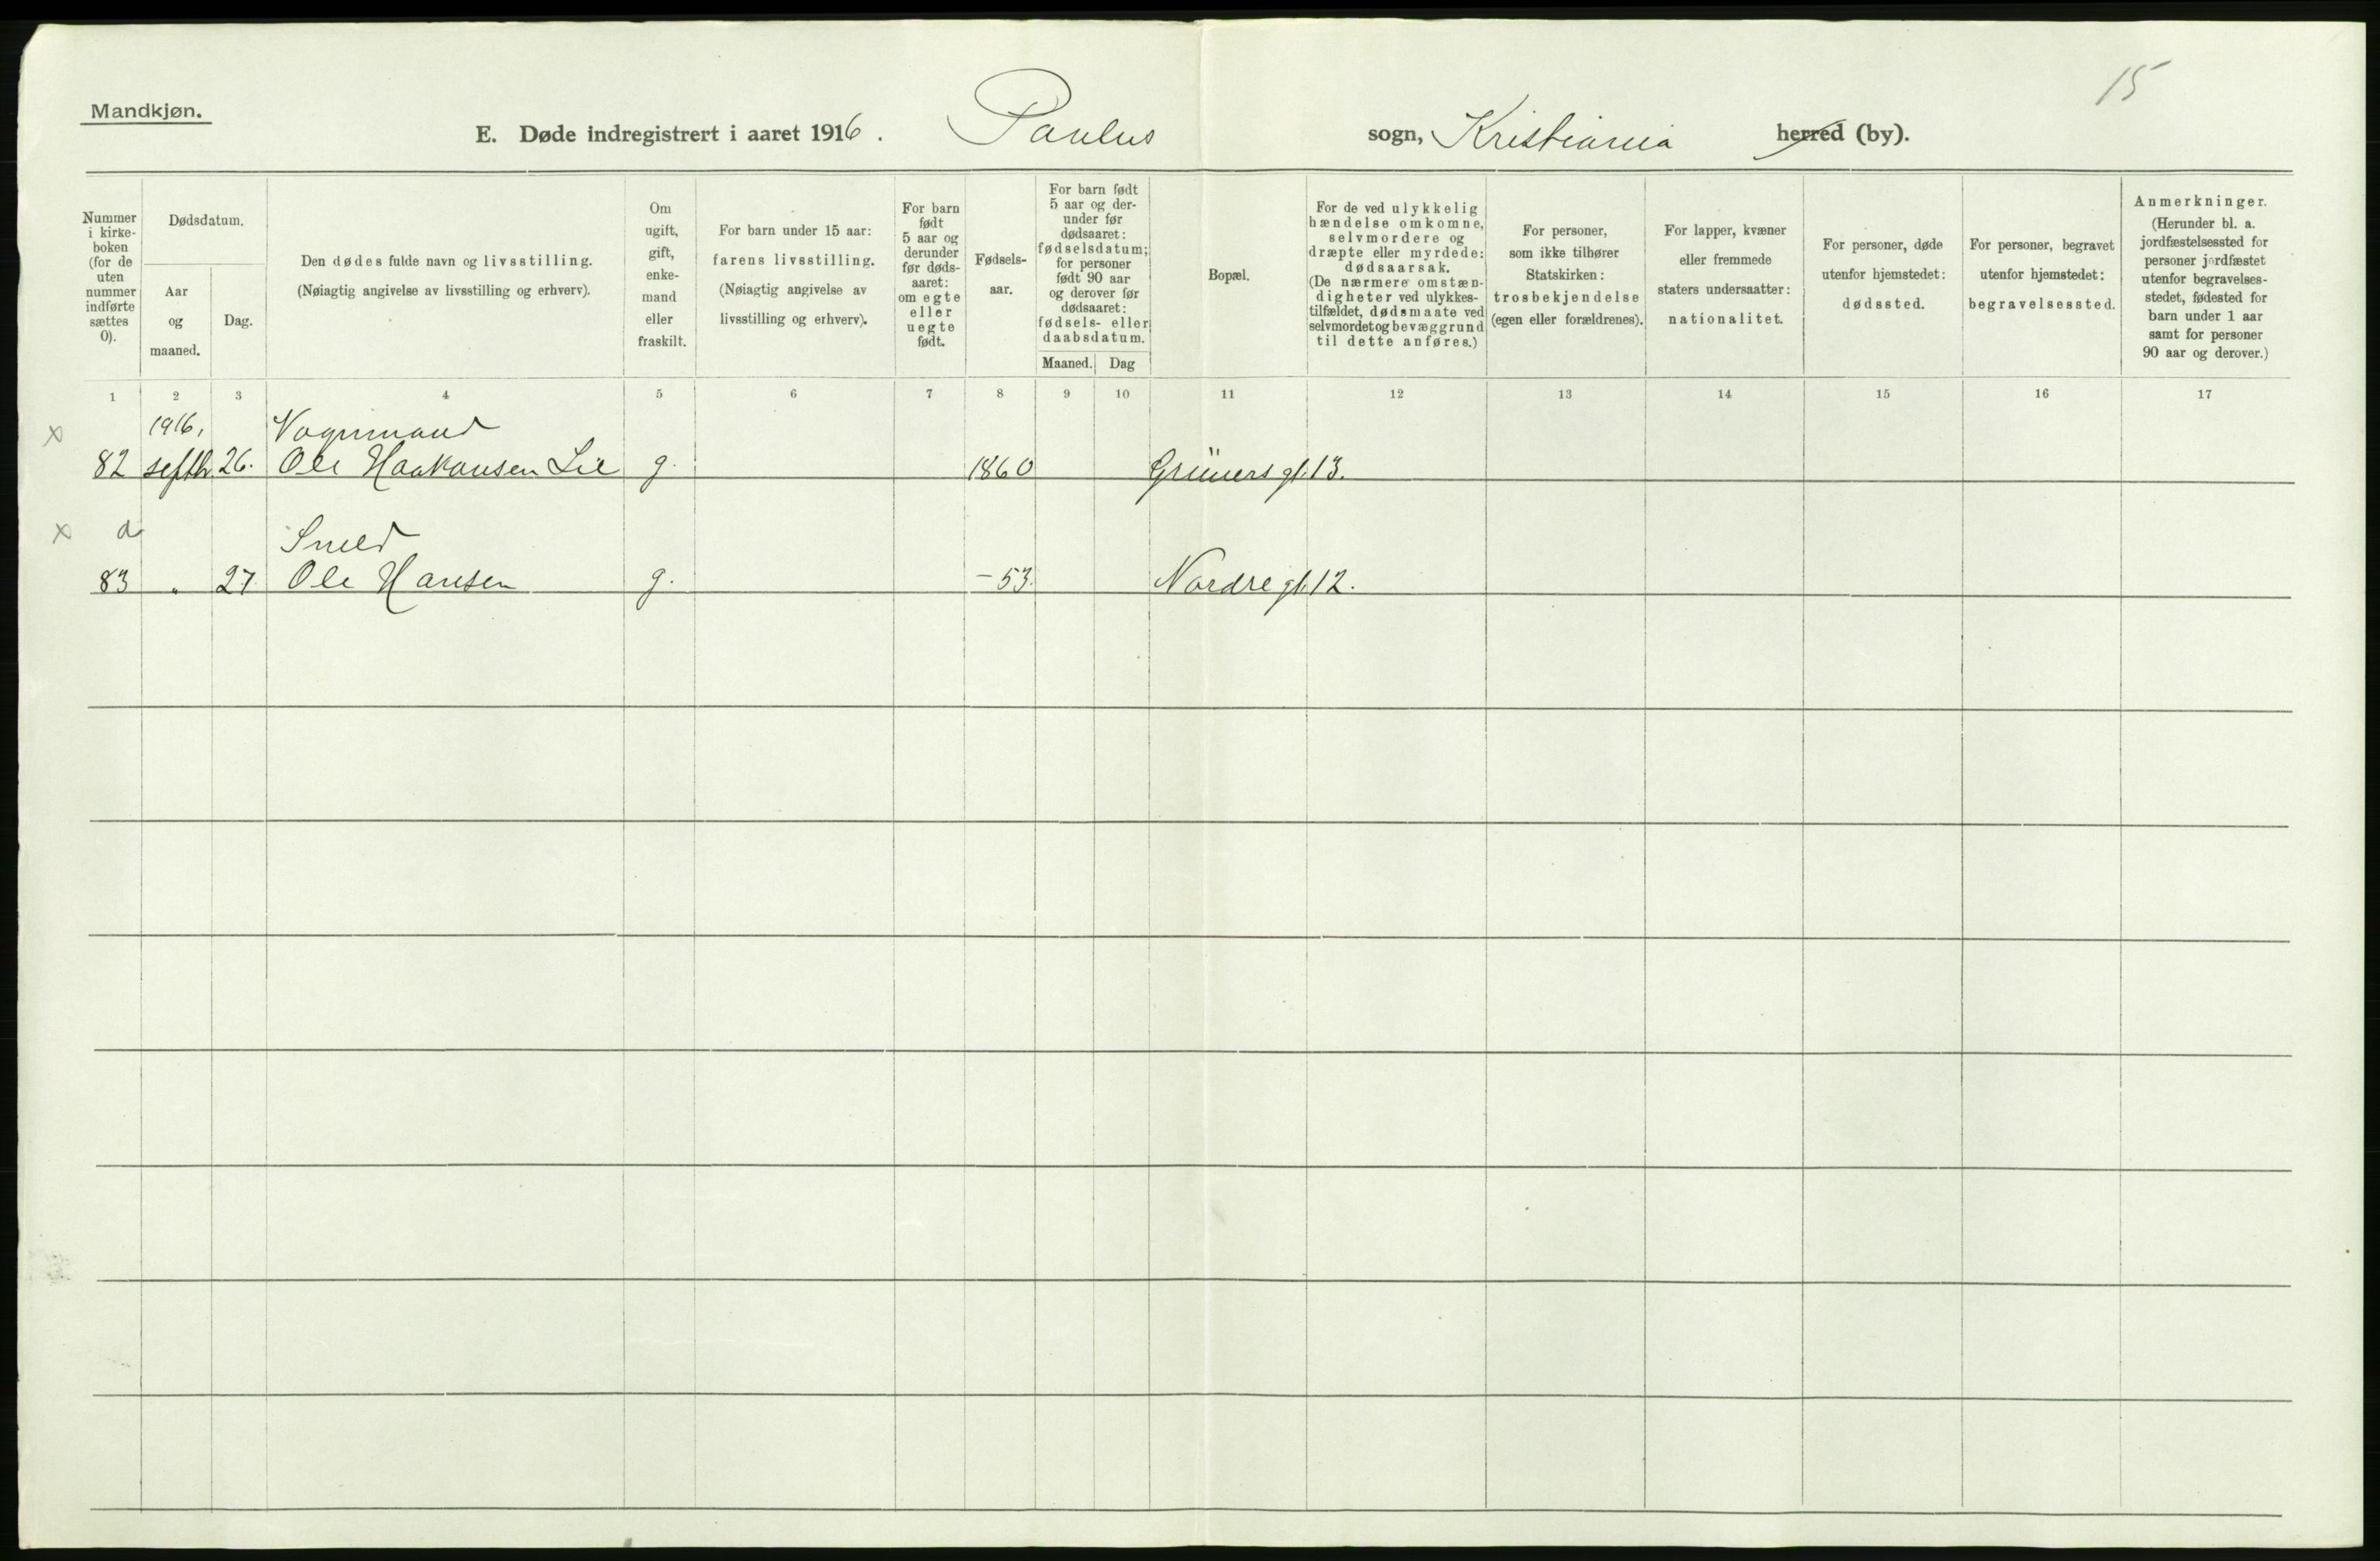 15
Mandkjøn.
E. Døde indregistrert i aaret 1916. Paulus sogn, Kristiania herred (by).
Nummer
i kirke-
boken
(for de
uten
nummer
indførte
sættes
0).
Dødsdatum.
Aar
og
maaned.
Dag.
Den dødes fulde navn og livsstilling.
(Nøiagtig angivelse av livsstilling og erhverv).
Om
ugift,
gift,
enke-
mand
eller
fraskilt.
For barn under 15 aar:
farens livsstilling.
(Nøiagtig angivelse av
livsstilling og erhverv).
For barn
født
5 aar og
derunder
før døds-
aaret:
om egte
eller
uegte
født.
Fødsels-
aar.
For barn født
5 aar og der-
under før
dødsaaret:
fødselsdatum;
for personer
født 90 aar
og derover før
dødsaaret:
fødsels- eller
daabsdatum.
Maaned. Dag
Bopæl.
For de ved ulykkelig
hændelse omkomne,
selvmordere og
dræpte eller myrdede:
dødsaarsak.
(De nærmere omstæn-
digheter ved ulykkes-
tilfældet, dødsmaate ved
selvmordet og bevæggrund
til dette anføres.)
For personer,
som ikke tilhører
Statskirken:
trosbekjendelse
(egen eller forældrenes).
For lapper, kvæner
eller fremmede
staters undersaatter:
nationalitet.
For personer, døde
utenfor hjemstedet:
dødssted.
For personer, begravet
utenfor hjemstedet:
begravelsessted.
Anmerkninger.
(Herunder bl. a.
jordfæstelsessted for
personer jordfæstet
utenfor begravelses-
stedet, fødested for
barn under 1 aar
samt for personer
90 aar og derover.)
1 2 3 4 5 6 7 8 9 10 11 12 13 14 15 16 17
x 1916, Vognmand
82 septb. 26. Ole Haakonsen Lie g. 1860 Grüners gt. 13.
x a Smed
83 " 27. Ole Hansen g. -53. Nordre gt. 12.